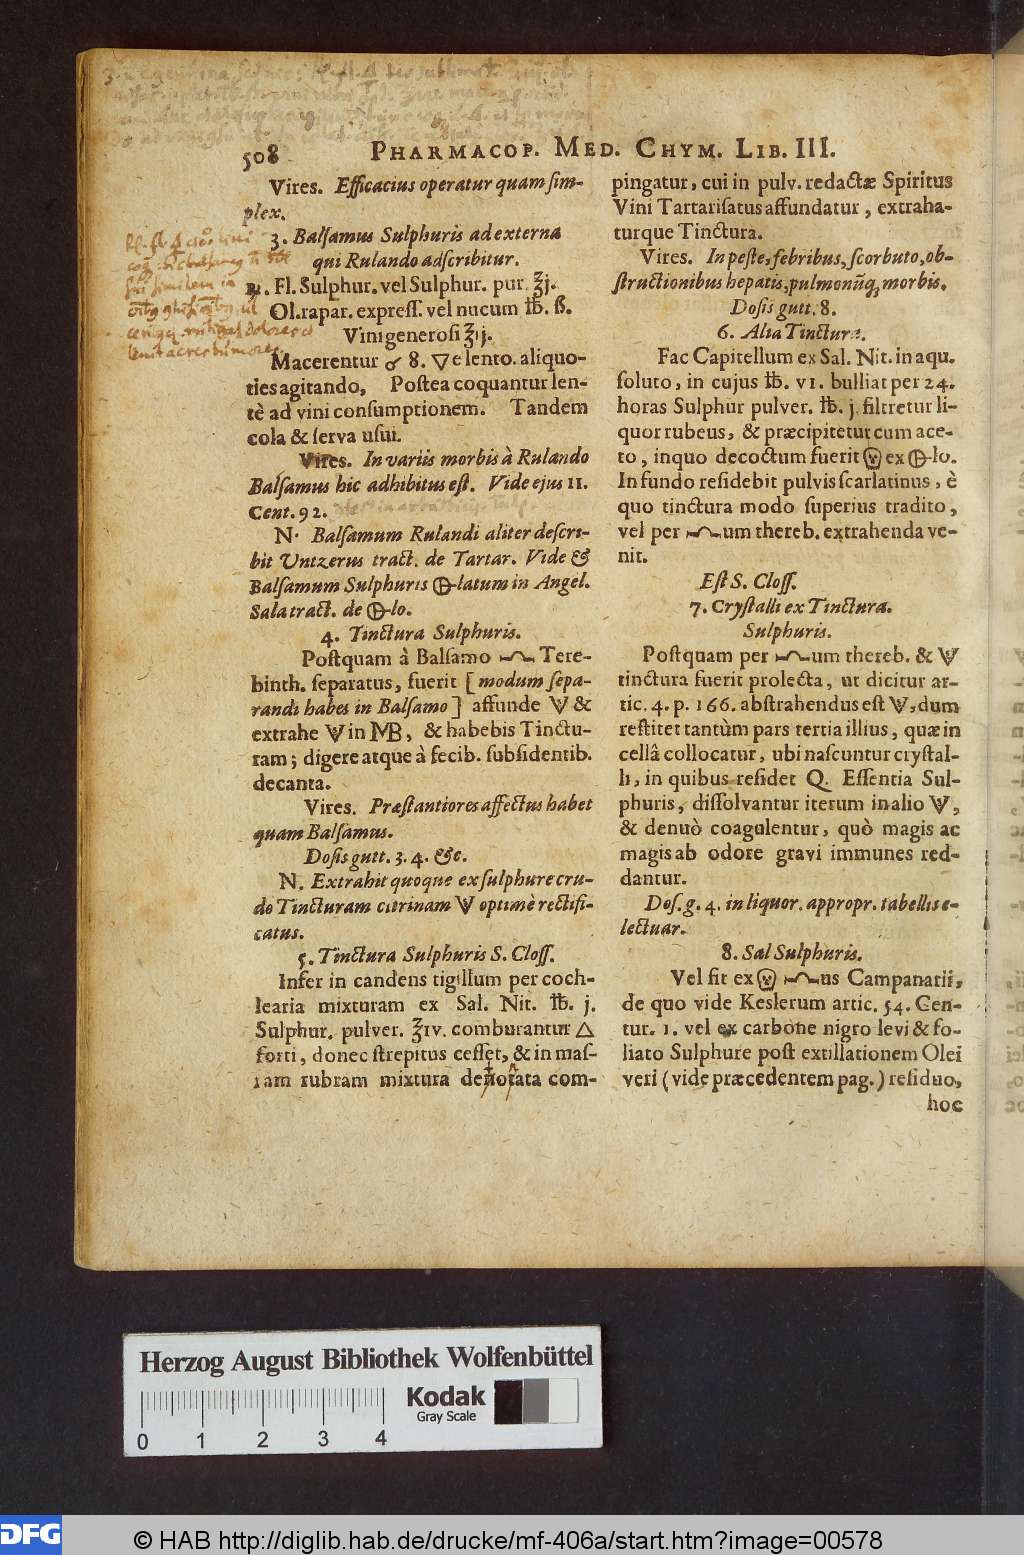 508 PHARMACOP. MED. CHYM. LIB. III.
Vires. Efficacius operatur quam ſim-
plex.
3. Balſamus Sulphuris ad externa
qui Rulando adſcribitur.
℞. Fl. Sulphur. vel Sulphur. pur. ℥j.
Ol. rapar. expreſſ. vel nucum ℔. ß.
Vini generoſi ℥ij.
Macerentur ☌ 8. 🜄e lento. aliquo-
ties agitando, Poſtea coquantur len-
tè ad vini conſumptionem. Tandem
cola & ſerva uſui.
Vires. In variis morbis à Rulando
Balſamus hic adhibitus eſt. Vide ejus 11.
Cent. 92.
N. Balſamum Rulandi aliter deſcri-
bit Untzerus tract. de Tartar. Vide &
Balſamum Sulphuris 🜕-latum in Angel.
Sala tract. de 🜕-lo.
4. Tinctura Sulphuris.
Poſtquam à Balſamo Tere-
binth. ſeparatus, fuerit [modum ſepa-
randi habes in Balſamo] affunde 🜈 &
extrahe 🜈 in MB, & habebis Tinctu-
ram; digere atque à fecib. ſubſidentib.
decanta.
Vires. Præſtantiores affectus habet
quam Balſamus.
Doſis gutt. 3. 4. &c.
N. Extrahit quoque ex ſulphure cru-
do Tincturam citrinam 🜈 optimè rectifi-
catus.
5. Tinctura Sulphuris S. Cloſſ.
Infer in candens tigillum per coch-
learia mixturam ex Sal. Nit. ℔. j.
Sulphur. pulver. ℥iv. comburantur 🜂
forti, donec ſtrepitus ceſſet, & in maſ-
ſam rubram mixtura detotata com-
pingatur, cui in pulv. redactæ Spiritus
Vini Tartariſatus affundatur, extraha-
turque Tinctura.
Vires. In peſte, febribus, ſcorbuto, ob-
ſtructionibus hepatis, pulmonūq; morbis.
Doſis gutt. 8.
6. Alia Tinctura.
Fac Capitellum ex Sal. Nit. in aqu.
ſoluto, in cujus ℔. VI. bulliat per 24.
horas Sulphur pulver. ℔. j. filtretur li-
quor rubeus, & præcipitetur cum ace-
to, in quo decoctum fuerit ex 🜕-lo.
In fundo reſidebit pulvis ſcarlatinus, è
quo tinctura modo ſuperius tradito,
vel per um thereb. extrahenda ve-
nit.
Eſt S. Cloſſ.
7. Cryſtalli ex Tinctura.
Sulphuris.
Poſtquam per um thereb. & 🜈
tinctura fuerit prolecta, ut dicitur ar-
tic. 4. p. 166. abſtrahendus eſt 🜈, dum
reſtitet tantùm pars tertia illius, quæ in
cellâ collocatur, ubi naſcuntur cryſtal-
li, in quibus reſidet Q. Eſſentia Sul-
phuris, diſſolvantur iterum in alio 🜈,
& denuò coagulentur, quò magis ac
magis ab odore gravi immunes red-
dantur.
Doſ. g. 4. in liquor. appropr. tabellis e-
lectuar.
8. Sal Sulphuris.
Vel fit ex us Campanarii,
de quo vide Keslerum artic. 54. Cen-
tur. 1. vel ex carbone nigro levi & fo-
liato Sulphure poſt extillationem Olei
veri (vide præcedentem pag.) reſiduo,
hoc
Herzog August Bibliothek Wolfenbüttel
Kodak
Gray Scale
0 1 2 3 4
DFG
© HAB http://diglib.hab.de/drucke/mf-406a/start.htm?image=00578